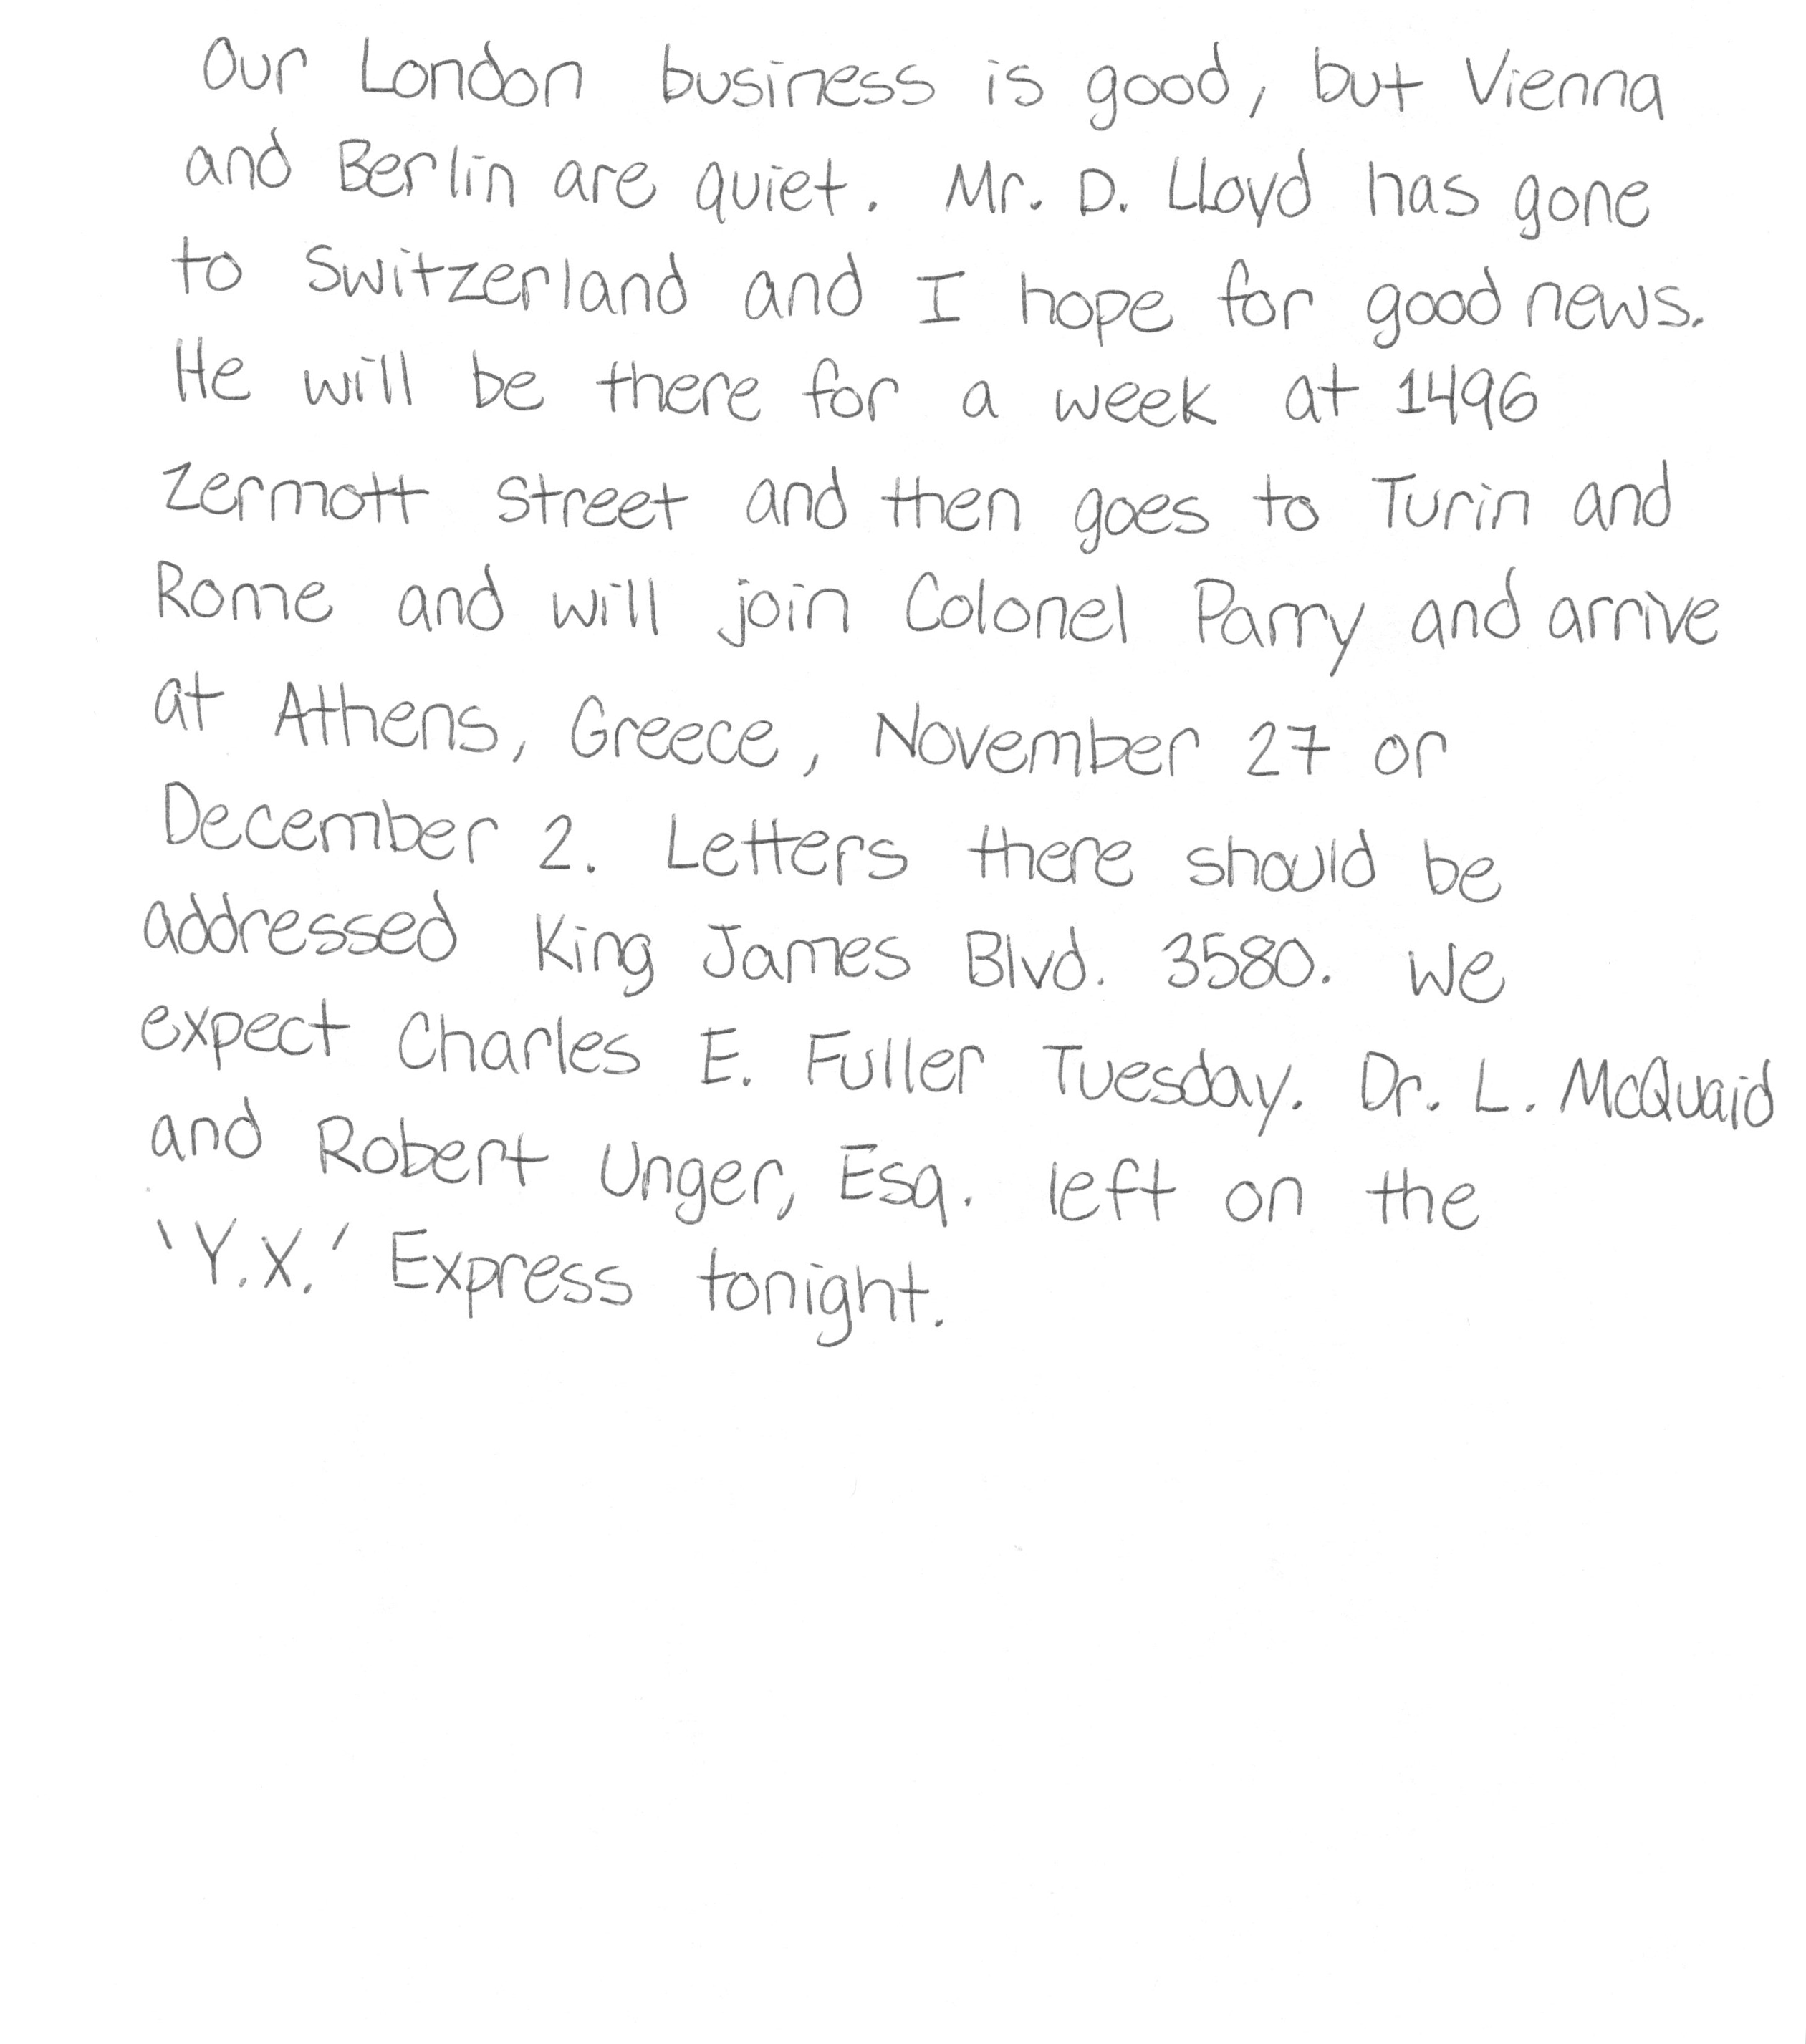 Our London business is good, but Vienna
and Berlin are quiet. Mr. D. Lloyd has gone
to Switzerland and I hope for good news.
He will be there for a week at 1496
Zermott Street and then goes to Turin and
Rome and will join Colonel Parry and arrive
at Athens, Greece, November 27 or
December 2. Letters there should be
addressed King James Blvd. 3580. We
expect Charles E. Fuller Tuesday. Dr. L. McQuaid
and Robert Unger, Esq. left on the
'Y.X.' Express tonight.